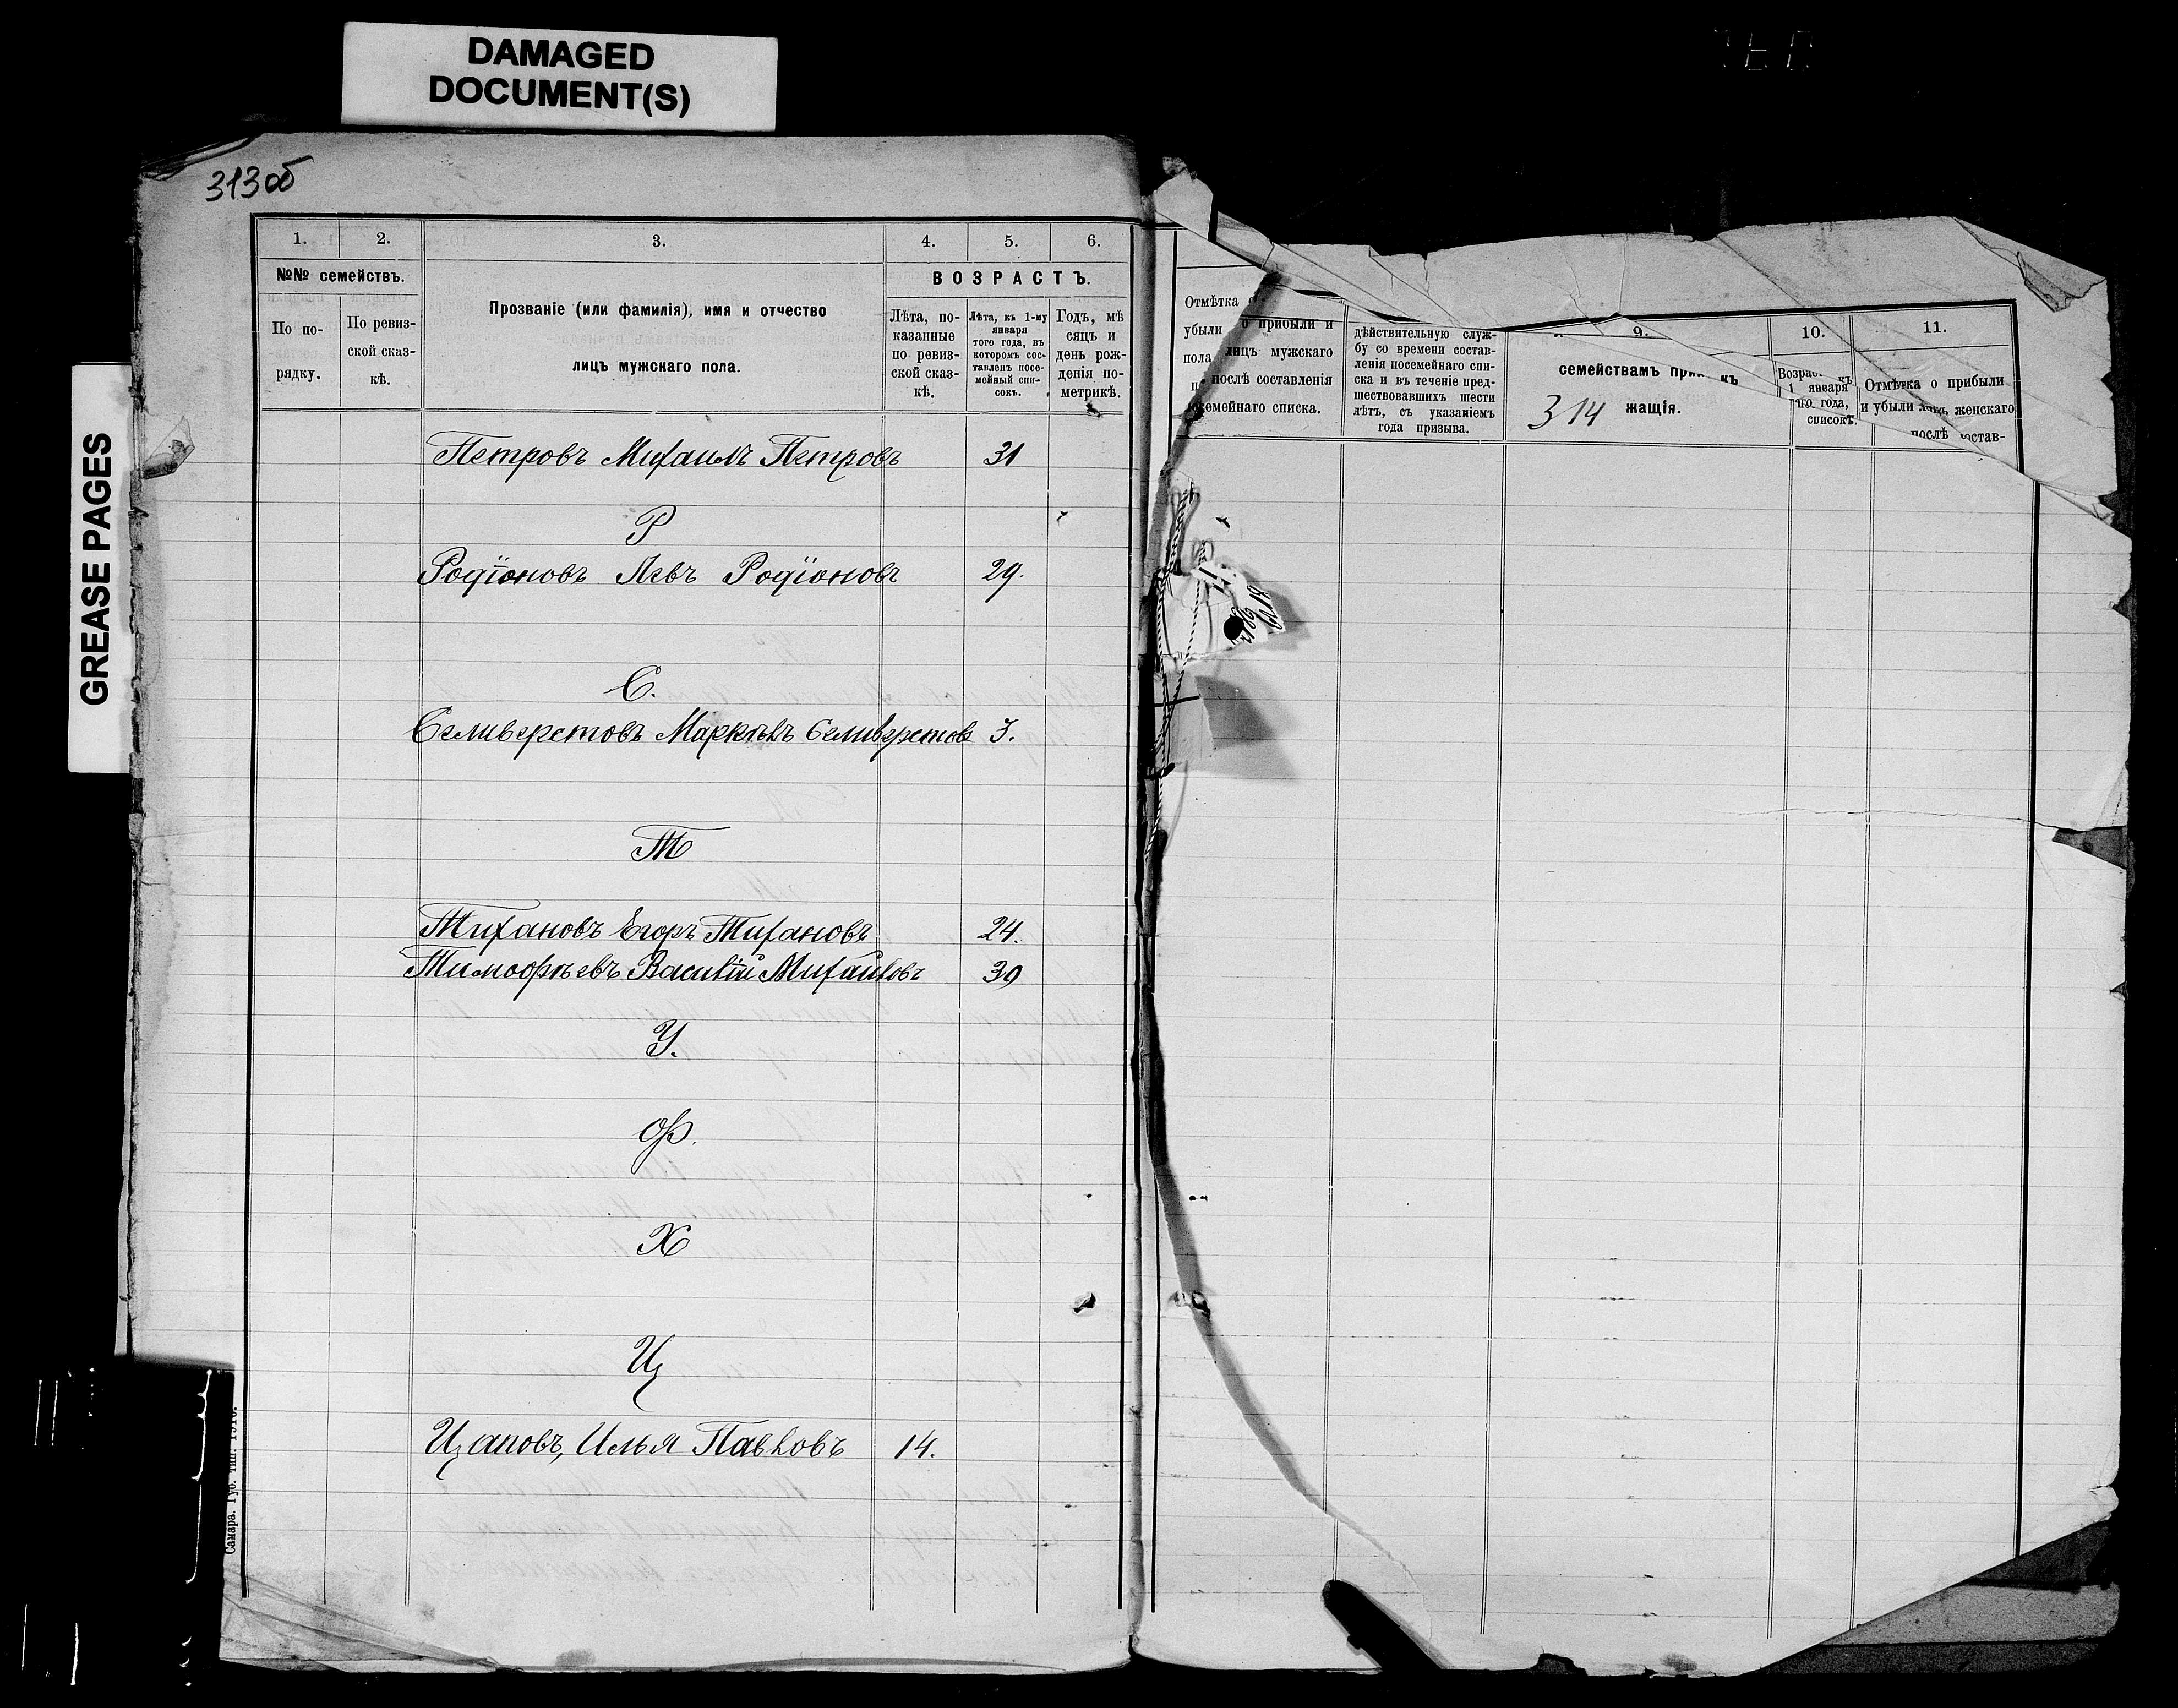 DAMAGED
DOCUMENT(S)
GREASE PAGES
313об
1. 2. 3. 4. 5. 6.
№№ семействъ.
По по-
рядку.
По ревиз-
ской сказ-
кѣ.
Прозваніе (или фамилія), имя и отчество
лицъ мужскаго пола.
ВОЗРАСТЪ.
Лѣта, по-
казанные
по ревиз-
ской сказ-
кѣ.
Лѣта, къ 1-му
января
того года, въ
которомъ сос-
тавленъ посе-
мейный спи-
сокъ.
Годъ, мѣ
сяцъ и
день рож-
денія по-
метрикѣ.
Петровъ Михаилъ Петровъ 31
Р
Родіоновъ Левъ Родіоновъ 29.
С.
Селиверстовъ Маркелъ Селиверстовъ 3.
Т
Тихановъ Егоръ Тихановъ 24.
Тимофѣевъ Василій Михайловъ 30
У.
Ф.
Х
Ц
Цаповъ, Илья Павловъ 14.
Самара. Губ. тип.
Отмѣтка
убыли о прибыли и
пола лицъ мужскаго
послѣ составленія
семейнаго списка.
дѣйствительную служ-
бу со времени состав-
ленія посемейнаго спи-
ска и въ теченіе пред-
шествовавшихъ шести
лѣтъ, съ указаніемъ
года призыва.
9.
семействамъ
314 жащія.
10.
къ
1 января
года,
списокъ.
11.
Отмѣтка о прибыли
и убыли женскаго
послѣ состав-